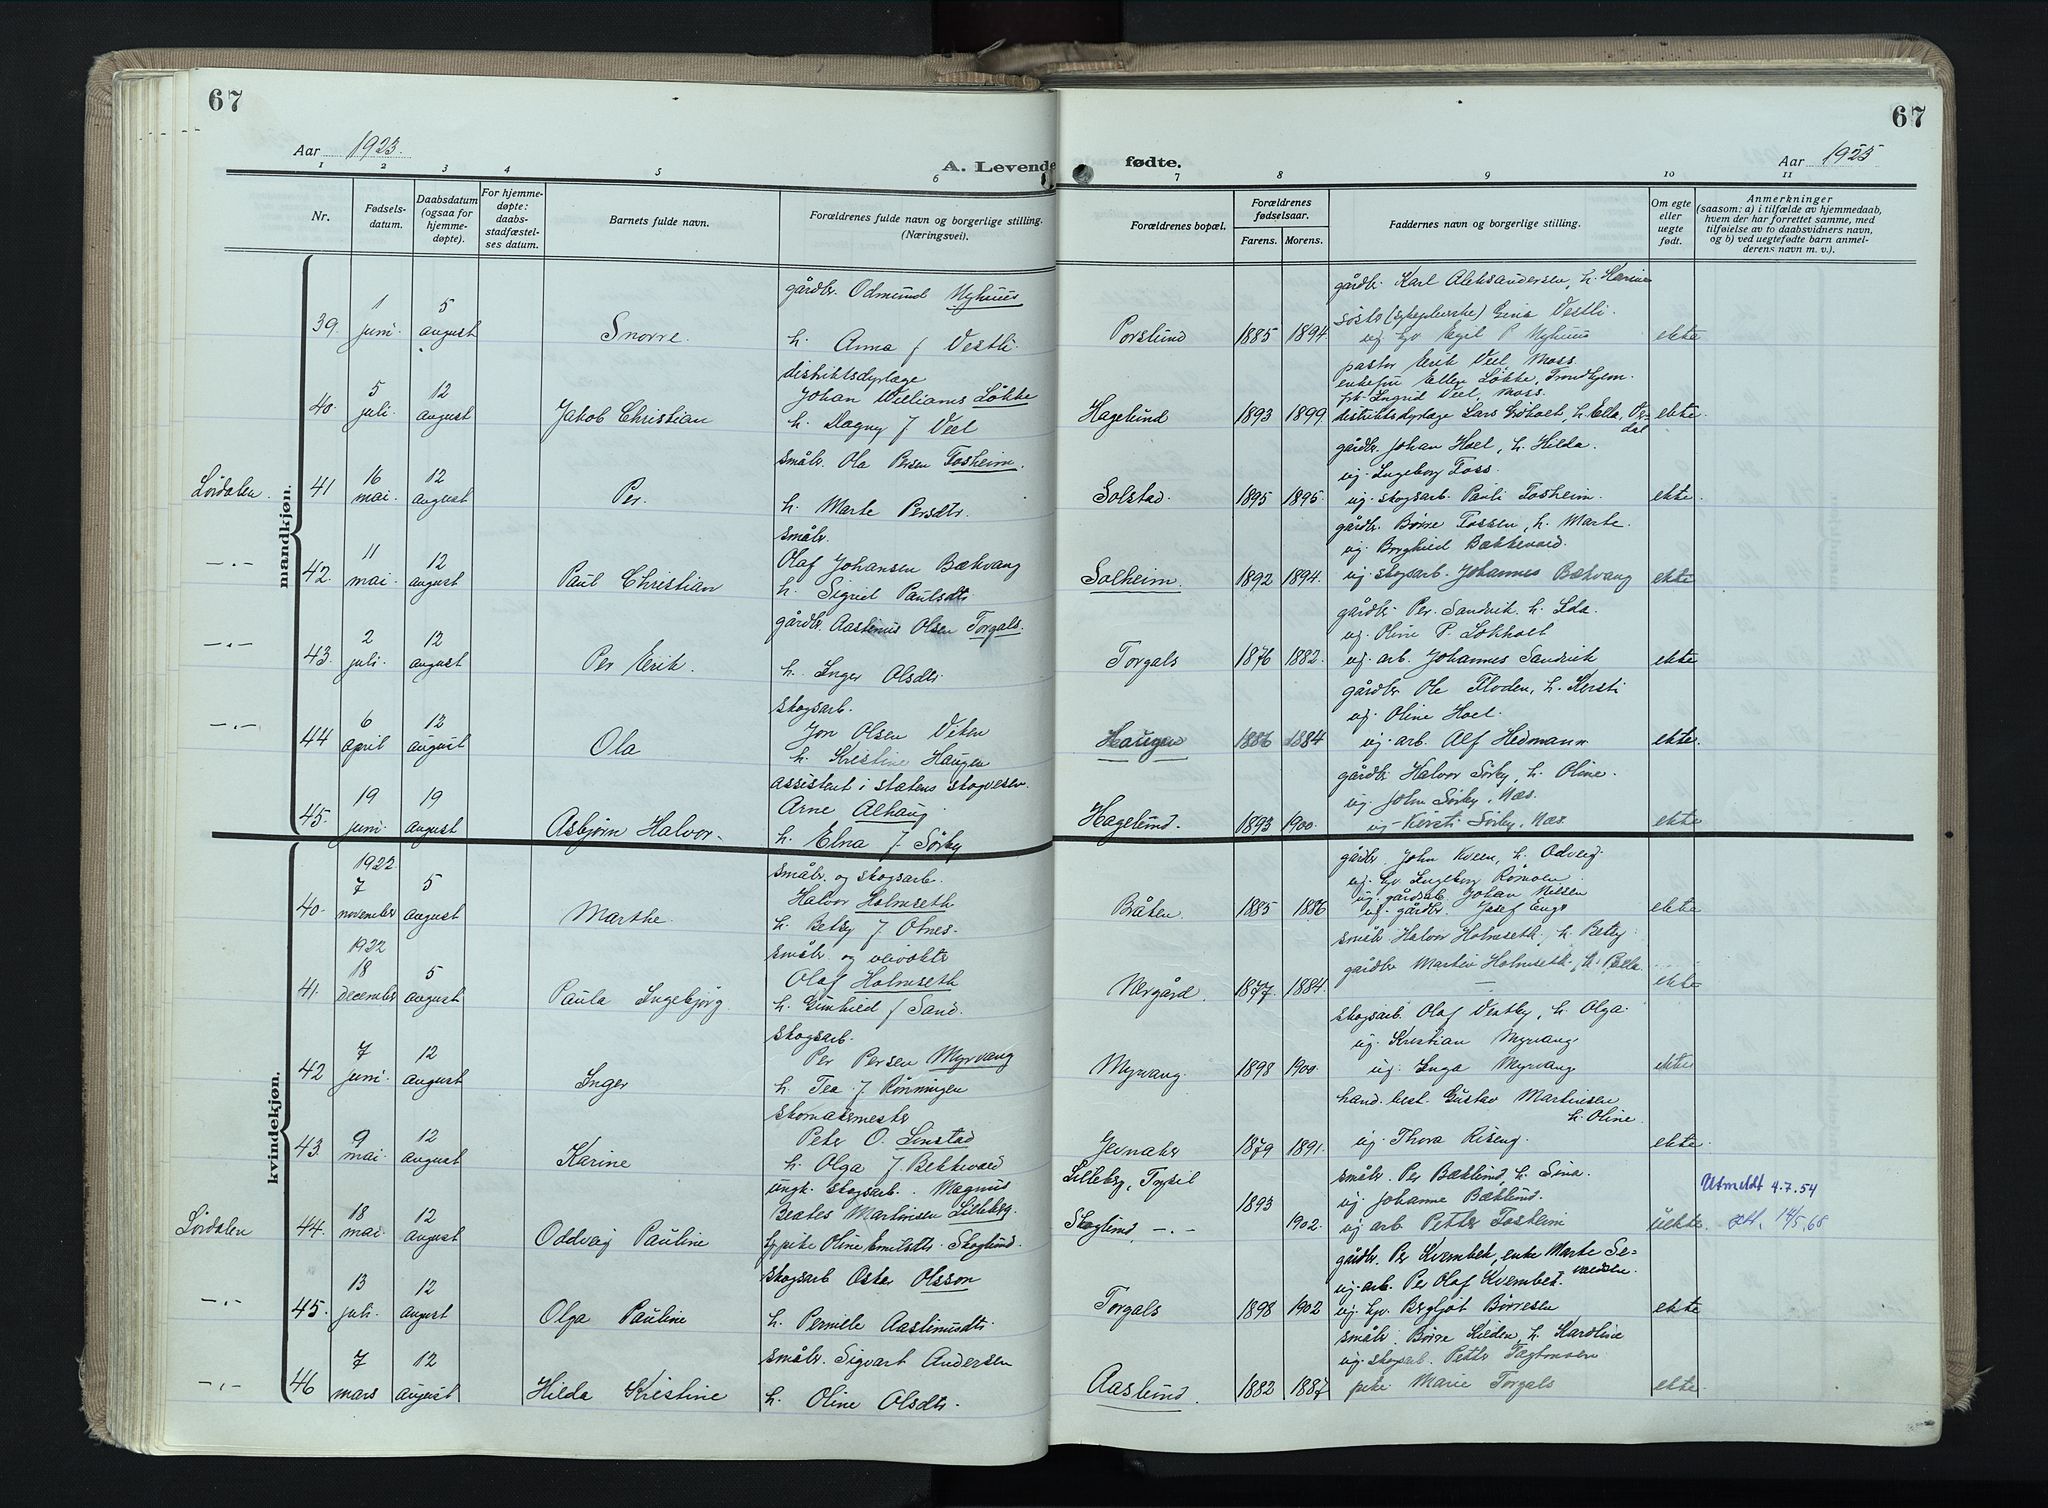 67
67
Aar 1923.
Aar 1923
A. Levende fødte.
1 2 3 4 5 6 7 8 9 10 11
Nr.
Fødsels-
datum.
Daabsdatum
(ogsaa for
hjemme-
døpte).
For hjemme-
døpte:
daabs-
stadfæstel-
ses datum.
Barnets fulde navn.
Forældrenes fulde navn og borgerlige stilling.
(Næringsvei).
Forældrenes bopæl.
Forældrenes
fødselsaar.
Farens. Morens.
Faddernes navn og borgerlige stilling.
Om egte
eller
uegte
født.
Anmerkninger
(saasom: a) i tilfælde av hjemmedaab,
hvem der har forrettet samme, med
tilføielse av to daabsvidners navn,
og b) ved uegtefødte barn anmel-
derens navn m. v.).
mandkjøn.
39. 1 juni. 5 august Snorre.
gårdbr. Odmund Nyhuus
h. Anna f Vestli.
Porslund 1885 1894
gårdbr. Karl Aleksandersen, h. Karine
søster (sykepleierske) Gina Vestli.
ug. Egil P Nyhuus
ekte
40. 5 juli. 12 august Jakob Christian
distriktsdyrlæge
Johan Williams Løkke
h. Dagny f Veel
Hagelund 1893 1899
pastor Erik Veel, Moss
enkefru Ellen Løkke, Trondhjem.
frk. Ingrid Veel, Moss.
distriktsdyrlæge Lars Grøholt, h. Ella,
ekte.
Lørdalen.
41 16 mai. 12 august Per.
småbr. Ola Persen Fosheim.
h. Marte Persdtr.
Solstad. 1895 1895.
gårdbr. Johan Hoel, h. Hilda.
ug. Ingeborg Foss.
ug. skogsarb. Pauli Fosheim.
ekte
— . —
42. 11 mai. 12 august Paul Christian
småbr.
Olaf Johansen Bækvang
h. Sigrid Paulsdtr
Solheim. 1892 1894.
gårdbr. Børre Fossen, h. Marte.
ug. Borghild Bækkevold.
ug. skogsarb. Johannes Bækvang
ekte
— . —
43. 2 juli. 12 august Per Erik.
gårdbr. Aastinus Olsen Torgals.
h. Inger Olsdtr
Torgals 1876 1882.
gårdbr. Per Sandvik. h. Ida.
ug. Oline P. Løkholt
ug. arb. Johannes Sandvik
ekte
— . —
44 6 april 12 august Ola
skogsarb.
Jon Olsen Viten
h. Kristine Haugen
Haugen 1886 1884
gårdbr Ole Floden, h. Kersti
ug. Oline Hoel.
ug. arb. Alf Hedmann
ekte.
45. 19 juni. 19 august Asbjørn Halvor.
assistent i statens skogvesen.
Arne Alhaug
h. Elna f. Sørby
Hagelund. 1893 1900.
gårdbr. Halvor Sørby, h. Oline.
ug. John Sørby, Næs.
ug. Kersti Sørby, Næs.
ekte
kvindekjøn.
40. 1922. 7 november 5 august Marthe
småbr. og skogsarb.
Halvor Holmseth
h. Betsy f Otnes.
Bråten 1885 1886
gårdbr. John Kveen, h. Odveig.
ug. Ingeborg Romoen.
ug. gårdsarb Johan Nilsen
ug. gårdbr. Josef Engs
ekte
41. 1922 18 december 5 august Paula Ingebjørg
småbr. og veivokter
Olaf Holmseth
h. Gunhild f Sand.
Nærgård. 1877 1884.
småbr Halvor Holmseth, h. Betsy
gårdbr Martin Holmseth, h. Bella.
—
ekte
42 7 juni. 12 august Inger
skogsarb.
Per Persen Myrvang
h. Tea f. Rønningen
Myrvang. 1898 1900.
skogsarb. Olaf Vestby, h. Olga.
ug. Kristian Myrvang.
ug. Inga Myrvang.
ekte
43. 9 mai. 12 august Karine
skomakermester
Peter O. Linstad
h. Olga f. Bekkevold
Jevnaker 1879 1891.
hand. best. Gustav Martinsen
h. Oline.
ug. Thora Riseng.
ekte.
Lørdalen
44. 18 mai. 12 august Oddveig Pauline
ungk. skogsarb. Magnus
Beates Martinsen Lilleberg.
pike Oline Emilsdtr. Skoglund.
Lilleberg, Trysil 1893
Skoglund, — . — 1902.
småbr. Per Bæklund, h. Sina.
ug. Johanne Bæklund.
ug. arb. Petter Fosheim
uekte.
Utmeldt 4.7.54
14/5.68
— . —
45. 13 juli. 12 august Olga Pauline
skogsarb Oskar Olsson
h. Pernille Aastinusdtr.
Torgals 1898 1902
gårdbr. Per Kvernbek, enke Marte Se-
valdsen.
ug. arb. Per Olaf Kvernbek.
ug. Bergljot Børresen
ekte
— . —
46 7 mars 12 august Hilda Kristine
småbr. Sigvart Andersen
h. Oline Olsdtr.
Aaslund. 1882 1887
småbr. Børre Kilden, h. Karoline
ug. skogsarb. Petter
pike Marie Torgals
ekte.